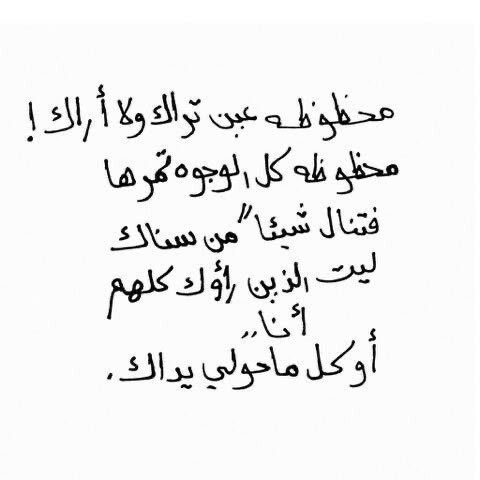 محظوظه عين تراك ولا أراك !
محظوظه كل الوجوه تمرها
فتنال شيئاً من سناك
ليت الذين رأوك كلهم
أنا ..
أو كل ما حولي يداك .